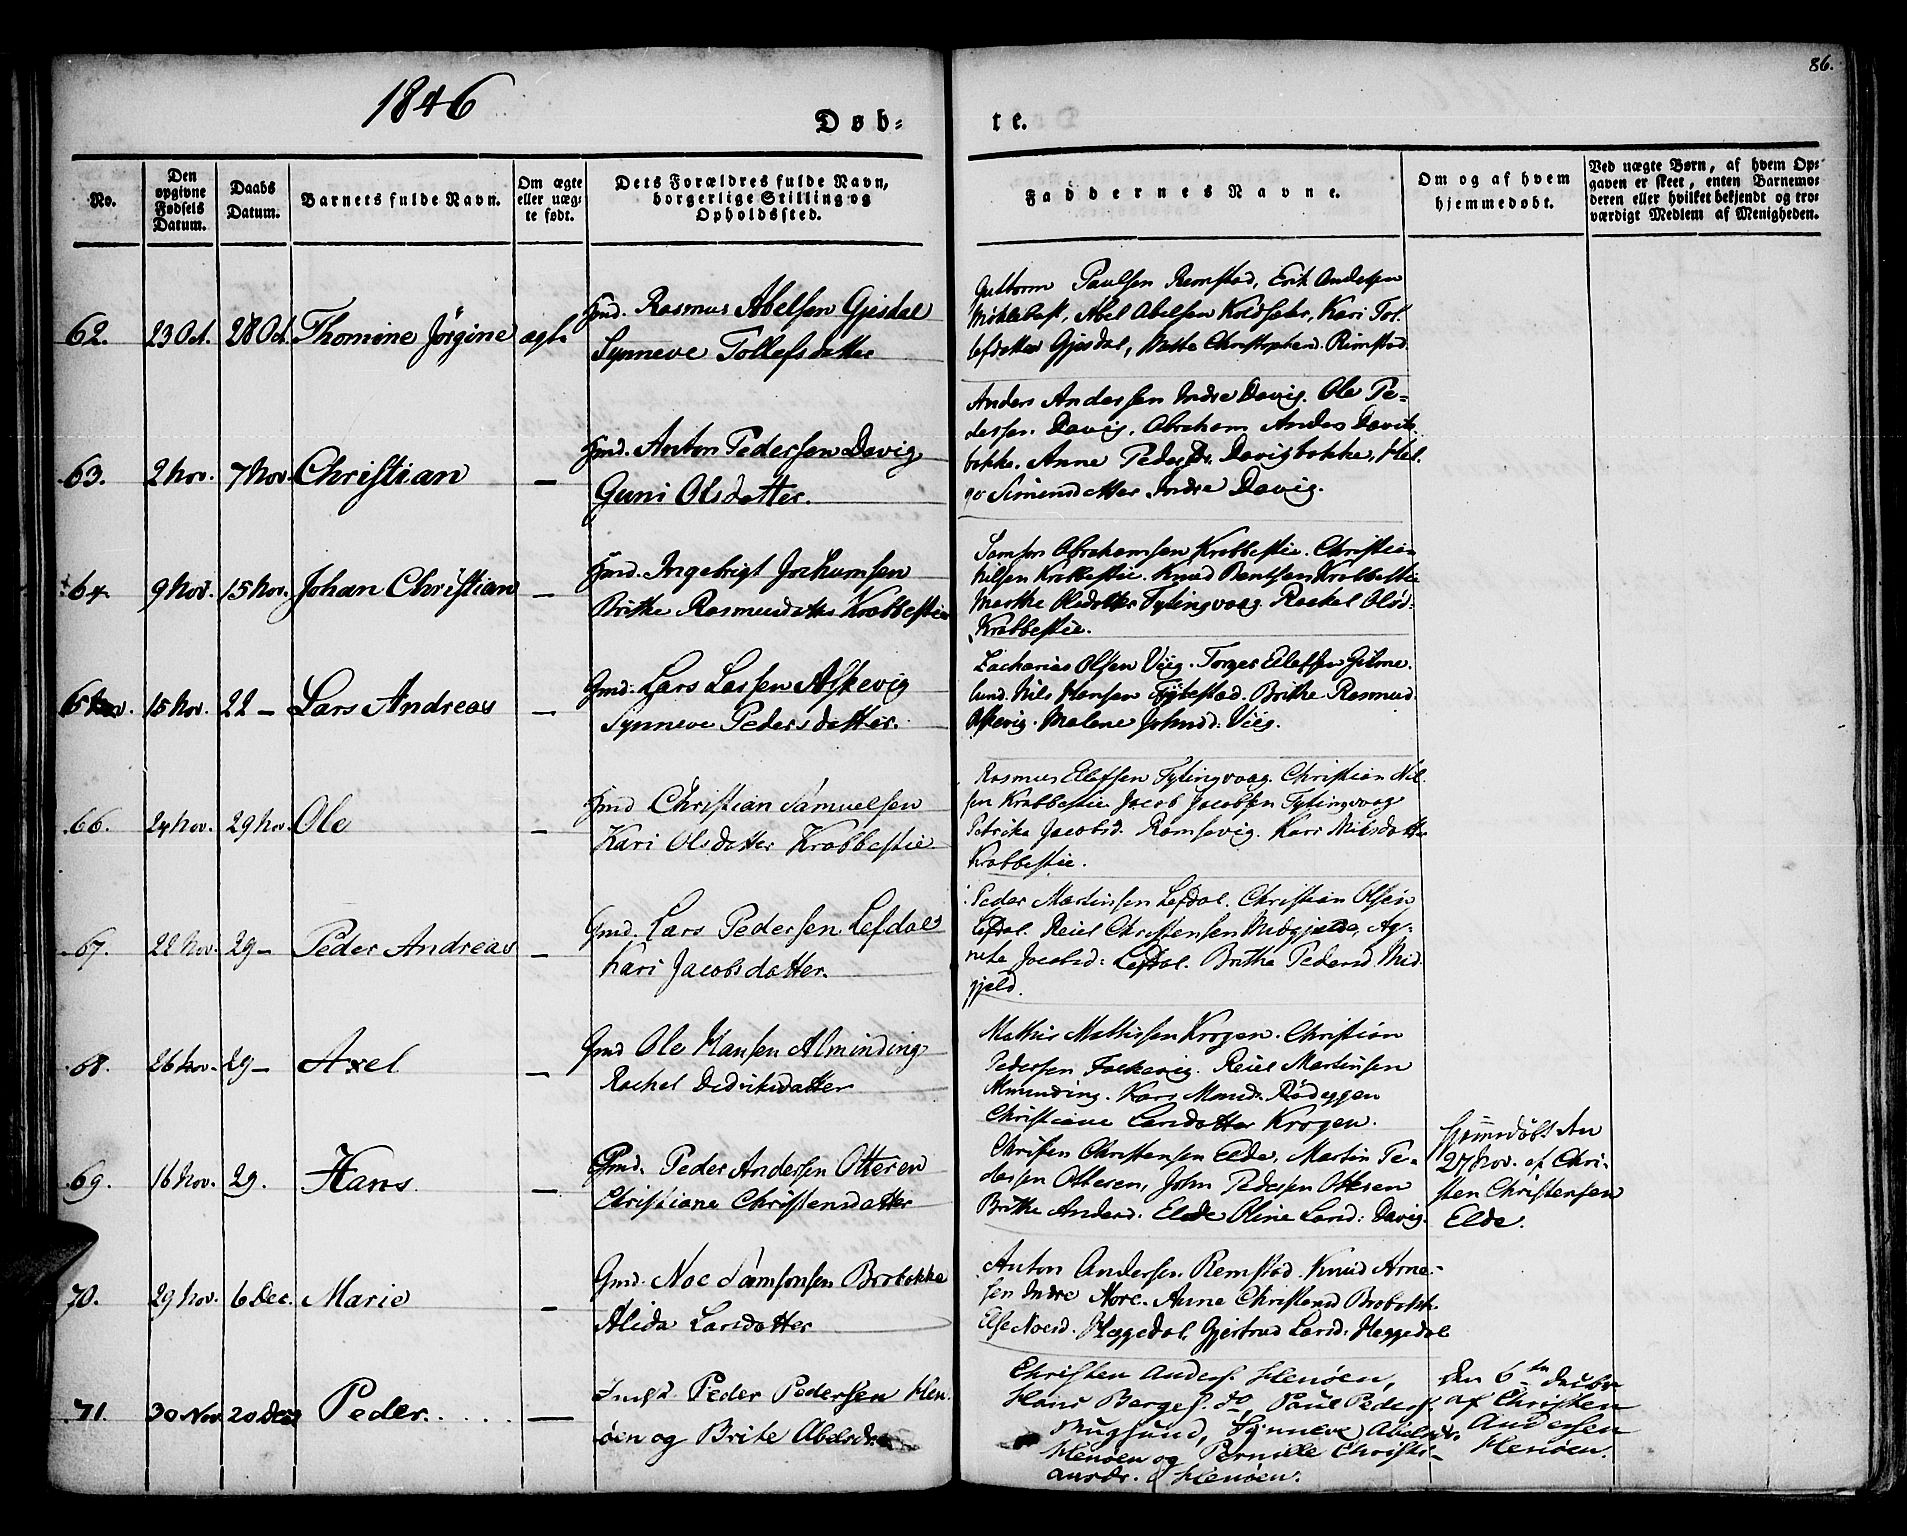 86.
1846
Døb-
te.
No.
Den opgivne Fødsels Datum.
Daabs Datum.
Barnets fulde Navn.
Om ægte eller uæg-te født.
Dets Forældres fulde Navn, borgerlige Stilling og Opholdssted.
Faddernes Navne.
Om og af hvem hjemmedøbt.
Ved uægte Børn, af hvem Op-gaven er skeet, enten Barnemo-deren eller hvilket bekjendt og tro-værdigt Medlem af Menigheden.
62. 23 Oct. 28 Oct. Thomine Jörgine ægte
Gmd. Rasmus Abelsen Gjesdal
Synneve Tollefsdatter
Guttorm Paulsen Remstad, Erik Andersen
Mikkelbust, Abel Abelsen Koldsehr, Kari Tol-
lefdatter Gjesdal, Mette Christophersd. Rimstad.
63. 2 Nov. 7 Nov. Christian —
Gmd. Anton Pedersen Davig
Guni Olsdatter.
Anders Andersen Indre Davig. Ole Pe-
dersen Davig, Abraham Anders Davik-
bakke. Anne Peders Dr. Davigbakke, Hel-
ge Simensdatter Indre Davig.
64. 9 Nov. 15 Nov. Johan Christian —
Gmd. Ingebrigt Jochumsen
Brithe Rasmusdatter Krabbestie
Samson Abrahamsen Krabbestie. Christian
Nilsen Krabbestie. Knud Bentsen Krabbestie
Marthe Olsdatter Tytingvaag. Rachel Olsd.
Krabbestie.
65. 15 Nov. 22 — Lars Andreas —
Gmd. Lars Larsen Askevig
Synneve Pedersdatter.
Zacharias Olsen Viig. Torger Ellefsen Gilme-
lund. Nils Hansen Tybestad. Brithe Rasmusd.
Askevig. Malene Johnsd: Viig.
66. 24 Nov. 29 Nov. Ole —
Gmd Christian Samuelsen
Kari Olsdatter Krabbestie
Rasmus Elefsen Tytingvaag. Christian Nil-
sen Krabbestie Jacob Jacobsen Tytingvaag
Petrike Jacobsd. Ramsevig. Kari Nilsdatter
Krabbestie.
67. 22 Nov. 29 — Peder Andreas —
Gmd. Lars Pedersen Lefdal
Kari Jacobsdatter.
Peder Martinsen Lefdal. Christian Olsen
Lefdal. Reiel Christensen Midgjelde, Ag-
nete Jacobsd: Lefdal. Brithe Pedersd. Mid-
gjeld.
68. 26 Nov. 29 — Axel —
Gmd Ole Hansen Alminding
Rachel Didriksdatter
Mathis Mathissen Krogen. Christian
Pedersen Faskevig. Reiel Martinsen
Alminding. Kari Monsd. Rödeggen
Christiane Larsdatter Krogen.
69. 16 Nov. 29. Hans. —
Gmd. Peder Andersen Otteren
Christiane Christensdatter
Christen Christensen Elde, Martin Pe-
dersen Otteren, John Pedersen Otteren
Brithe Andersd. Elde Oline Larsd: Davig.
Hjemdöbt den
27 Nov. af Chri-
sten Christensen
Elde.
70. 29 Nov. 6 Dec. Marie —
Gmd. Noe Samsonsen Brobakke
Alida Larsdatter
Anton Andersen Remstad. Knud Arne-
sen Indre Hore. Anne Christensd Brobakk.
Else Noesd. Heggedal. Gjertrud Larsd: Heggedal
71. 30 Nov. 20 Dec. Peder. —
Indst. Peder Pedersen Hen-
öen og Brite Abelsdr.
Christen Anders. Henöen,
Hans Berges. do, Paul Peders.
Rugsund, Synneve Abelsdr.
Henöen og Pernille Christi-
ansdr. Henöen.
Den 6te Decbr
af Christen
Andersen
Henöen.